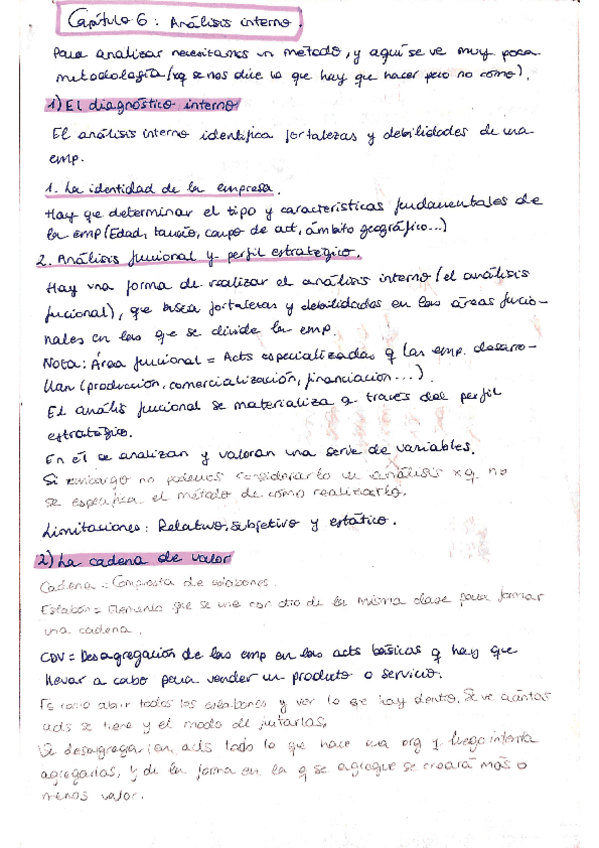 Capítulo 6: Análisis interno.
Para analizar necesitamos un método, y aquí se ve muy poca
metodología (xq se nos dice lo que hay que hacer pero no cómo).
1) El diagnóstico interno
El análisis interno identifica fortalezas y debilidades de una
emp.
1. La identidad de la empresa.
Hay que determinar el tipo y características fundamentales de
la emp (Edad, tamaño, campo de act, ámbito geográfico...)
2. Análisis funcional y perfil estratégico.
Hay una forma de realizar el análisis interno (el análisis
funcional), que busca fortalezas y debilidades en las áreas funcio-
nales en las que se divide la emp.
Nota: Área funcional = Acts especializadas q las emp. desarro-
llan (producción, comercialización, financiación...).
El anális funcional se materializa a través del perfil
estratégico.
En él se analizan y valoran una serie de variables.
Si embargo no podemos considerarlo un análisis xq no
se especifica el método de cómo realizarlo.
Limitaciones: Relativo, subjetivo y estático.
2) La cadena de valor
Cadena: Compuesta de eslabones.
Eslabón = Elemento que se une con otro de la misma clase para formar
una cadena.
CDV = Desagregación de las emp en las acts básicas q hay que
llevar a cabo para vender un producto o servicio.
Es como abrir todos los eslabones y ver lo que hay dentro. Se ve cuántas
acts se tiene y el modo de juntarlas.
Se desagrega en acts todo lo que hace una org y luego intenta
agregarlas, y de la forma en la q se agregue se creará más o
menos valor.